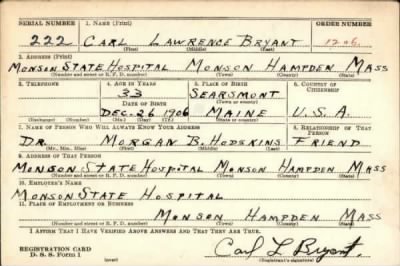 SERIAL NUMBER 1. NAME (Print) ORDER NUMBER
222 CARL LAWRENCE BRYANT 1206
(First) (Middle) (Last)
2. ADDRESS (Print)
MONSON STATE HOSPITAL MONSON HAMPDEN MASS
(Number and street or R. F. D. number) (Town) (County) (State)
3. TELEPHONE 4. AGE IN YEARS 5. PLACE OF BIRTH 6. COUNTRY OF CITIZENSHIP
33 SEARSMONT
DATE OF BIRTH (Town or county)
DEC. 26 1906 MAINE U.S.A
(Exchange) (Number) (Mo.) (Day) (Yr.) (State or country)
7. NAME OF PERSON WHO WILL ALWAYS KNOW YOUR ADDRESS 8. RELATIONSHIP OF THAT PERSON
DR. MORGAN B. HODSKINS FRIEND
(Mr., Mrs., Miss) (First) (Middle) (Last)
9. ADDRESS OF THAT PERSON
MONSON STATE HOSPITAL MONSON HAMPDEN MASS
(Number and street or R. F. D. number) (Town) (County) (State)
10. EMPLOYER'S NAME
MONSON STATE HOSPITAL
11. PLACE OF EMPLOYMENT OR BUSINESS
MONSON HAMPDEN MASS
(Number and street or R. F. D. number) (Town) (County) (State)
I AFFIRM THAT I HAVE VERIFIED ABOVE ANSWERS AND THAT THEY ARE TRUE.
REGISTRATION CARD
D. S. S. Form 1 (over) Carl L Bryant.
(Registrant's signature)